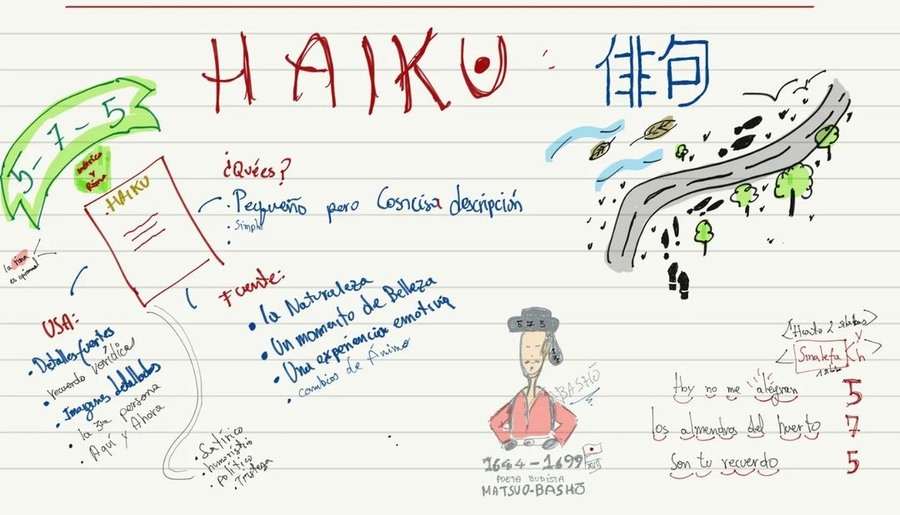 HAIKU: 俳句
5-7-5
métrica y Rima
HAIKU
la rima es opcional
¿Qué es?
• Pequeño pero Cosncisa descripción
• Simple
Fuente:
• la Naturaleza
• Un momento de Belleza
• Una experiencia emotiva
• cambios de Ánimo
USA:
• Detalles fuertes
• recuerdo verídico
• Imagenes detallados
• la 3ra persona
• Aquí y Ahora
• Satírico
• humorístico
• político
• Tristeza
5 7 5
BASHŌ
1644-1699
POETA BUDISTA
MATSUO-BASHŌ
Sinalefa
y
h
Hoy no me alegran 5
los almendros del huerto 7
Son tu recuerdo 5